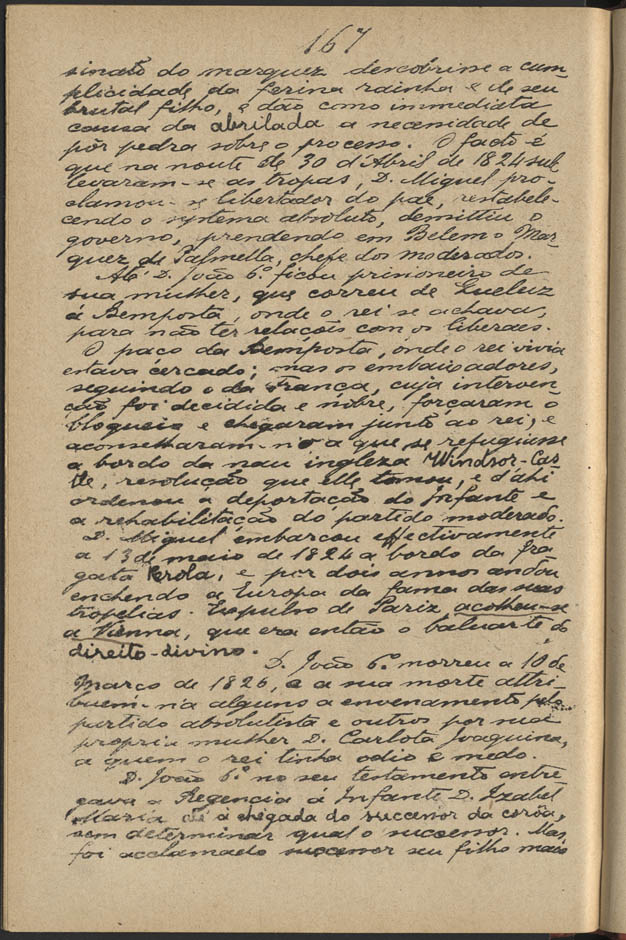 167
sinato do marquez descobrisse a cum-
plicidade da ferina rainha e de seu
brutal filho, e dão como immediata
causa da abrilada a necessidade de
pôr pedra sobre o processo. O facto é
que na noute de 30 d'Abril de 1824 sub
levaram-se as tropas, D. Miguel pro-
clamou-se libertador do pae, restabele-
cendo o systema absoluto, demittiu o
governo, prendendo em Belem o Mar-
quez de Palmella, chefe dos moderados.
Até D. João 6.º ficou prisioneiro de
sua mulher, que correu de Queluz
á Bemposta, onde o rei se achava,
para não ter relações com os liberaes.
O paço da Bemposta, onde o rei vivia
estava cercado; mas os embaixadores,
seguindo o da França, cuja interven-
ção foi decidida e nobre, forçaram o
bloqueio e chegaram junto ao rei, e
aconselharam-n'o a que se refugiasse
a bordo da nau ingleza Windsor-Cas-
tle, resolução que elle tomou, e d'ahi
ordenou a deportação do Infante e
a rehabilitação do partido moderado.
D. Miguel embarcou effectivamente
a 13 de maio de 1824 a bordo da fra
gata Perola, e por dois annos andou
enchendo a Europa da fama das suas
tropelias. Expulso de Pariz, acolheu-se
a Vienna, que era então o baluarte do
direito-divino.
D. João 6.º morreu a 10 de
Março de 1826, e a sua morte attri-
buem-n'a alguns a envenamento pelo
partido absolutista e outros por sua
propria mulher D. Carlota Joaquina,
a quem o rei tinha odio e medo.
D. João 6.º no seu testamento entre
gava a Regencia á Infante D. Izabel
Maria até á chegada do successor da corôa,
sem determinar qual o successor. Mas
foi acclamado successor seu filho mais